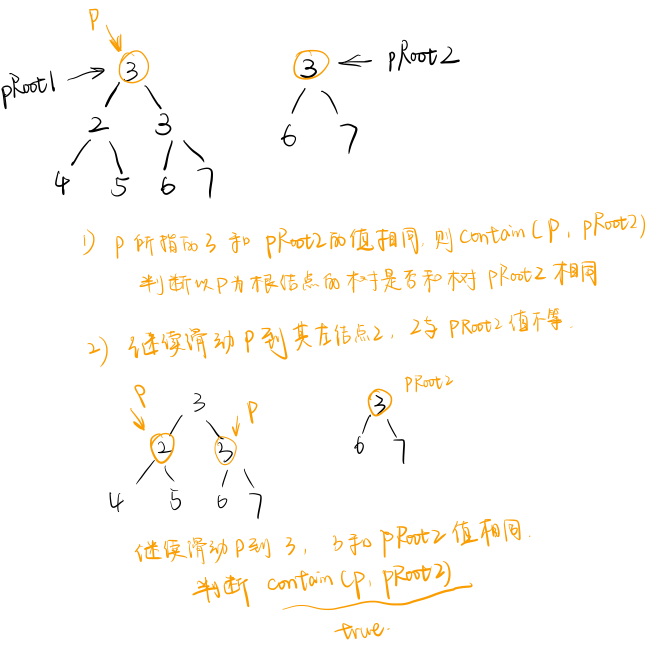 P
pRoot1
3
3
pRoot2
2 3
6 7
4 5 6 7
1) P所指的3 和 pRoot2的值相同, 则 contain(P, pRoot2)
判断以P为根结点的树是否和树 pRoot2 相同
2) 继续滑动P到其左结点2, 2与 pRoot2 值不等.
P
3
P
3
pRoot2
2 3
6 7
4 5 6 7
继续滑动P到 3, 3和 pRoot2 值相同.
判断 contain(p, pRoot2)
true.